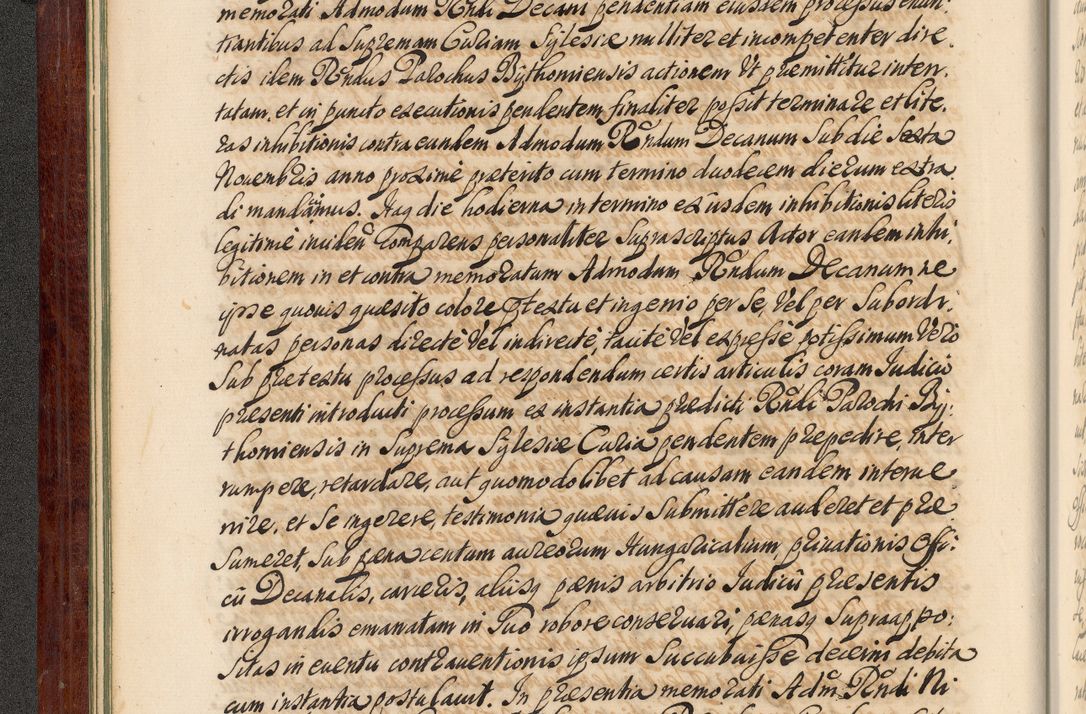 memorati Admodum Rndi Decani pendentiam eiusdem processus enun:
tiantibus ad Supremam Curiam Sylesiæ nulliter et incompetenter dire,
ctis idem Rndus Parochus Bythomiensis actionem Vt præmittitur inten,
tatam, et in puncto executionis pendentem, finaliter possit terminare et lite,
ras inhibitionis contra eundem Admodum Rndum Decanum Sub die Sexta
Nouembris anno proximè præterito cum termino duodecem dierum extra,
di mandauimus. Itaq die hodierna in termino ex eiusdem inhibitionis literis
legitimè inciden Comparens personaliter Suprascriptus Actor eandem inhi,
bitionem in et contra memoratum Admodum Rndum Decanum ne
ipse quouis quæsito colore prætextu et ingenio per Se, Vel per Subordi,
natas personas directè Vel indirectè, tacitè Vel expressè potissimum Verò
Sub prætextu processus ad respondendum certis articulis coram Iudicio
præsenti introducti processum ex instantia prædicti Rndi Parochi By,
thomiensis in Suprema Sylesiæ Curia pendentem præpedire, inter
rumpere, retardare, aut quomodolibet ad causam eandem interue
nire, et Se ingerere, testimonia quæuis Submittere auderet et præ
Sumeret, Sub pæna centum aureorum Hungaricalium, priuationis Offi:
cii Decanalis, carceris, alijsq pænis arbitrio Iudicii præsentis
irrogandis emanatam in Suo robore conseruari, pænasq Supraappo:
Sitas in euentu contrauentionis ipsum Succubuisse decerni debita
cum instantia postulauit. In præsentia memorati Adm Rndi Ni